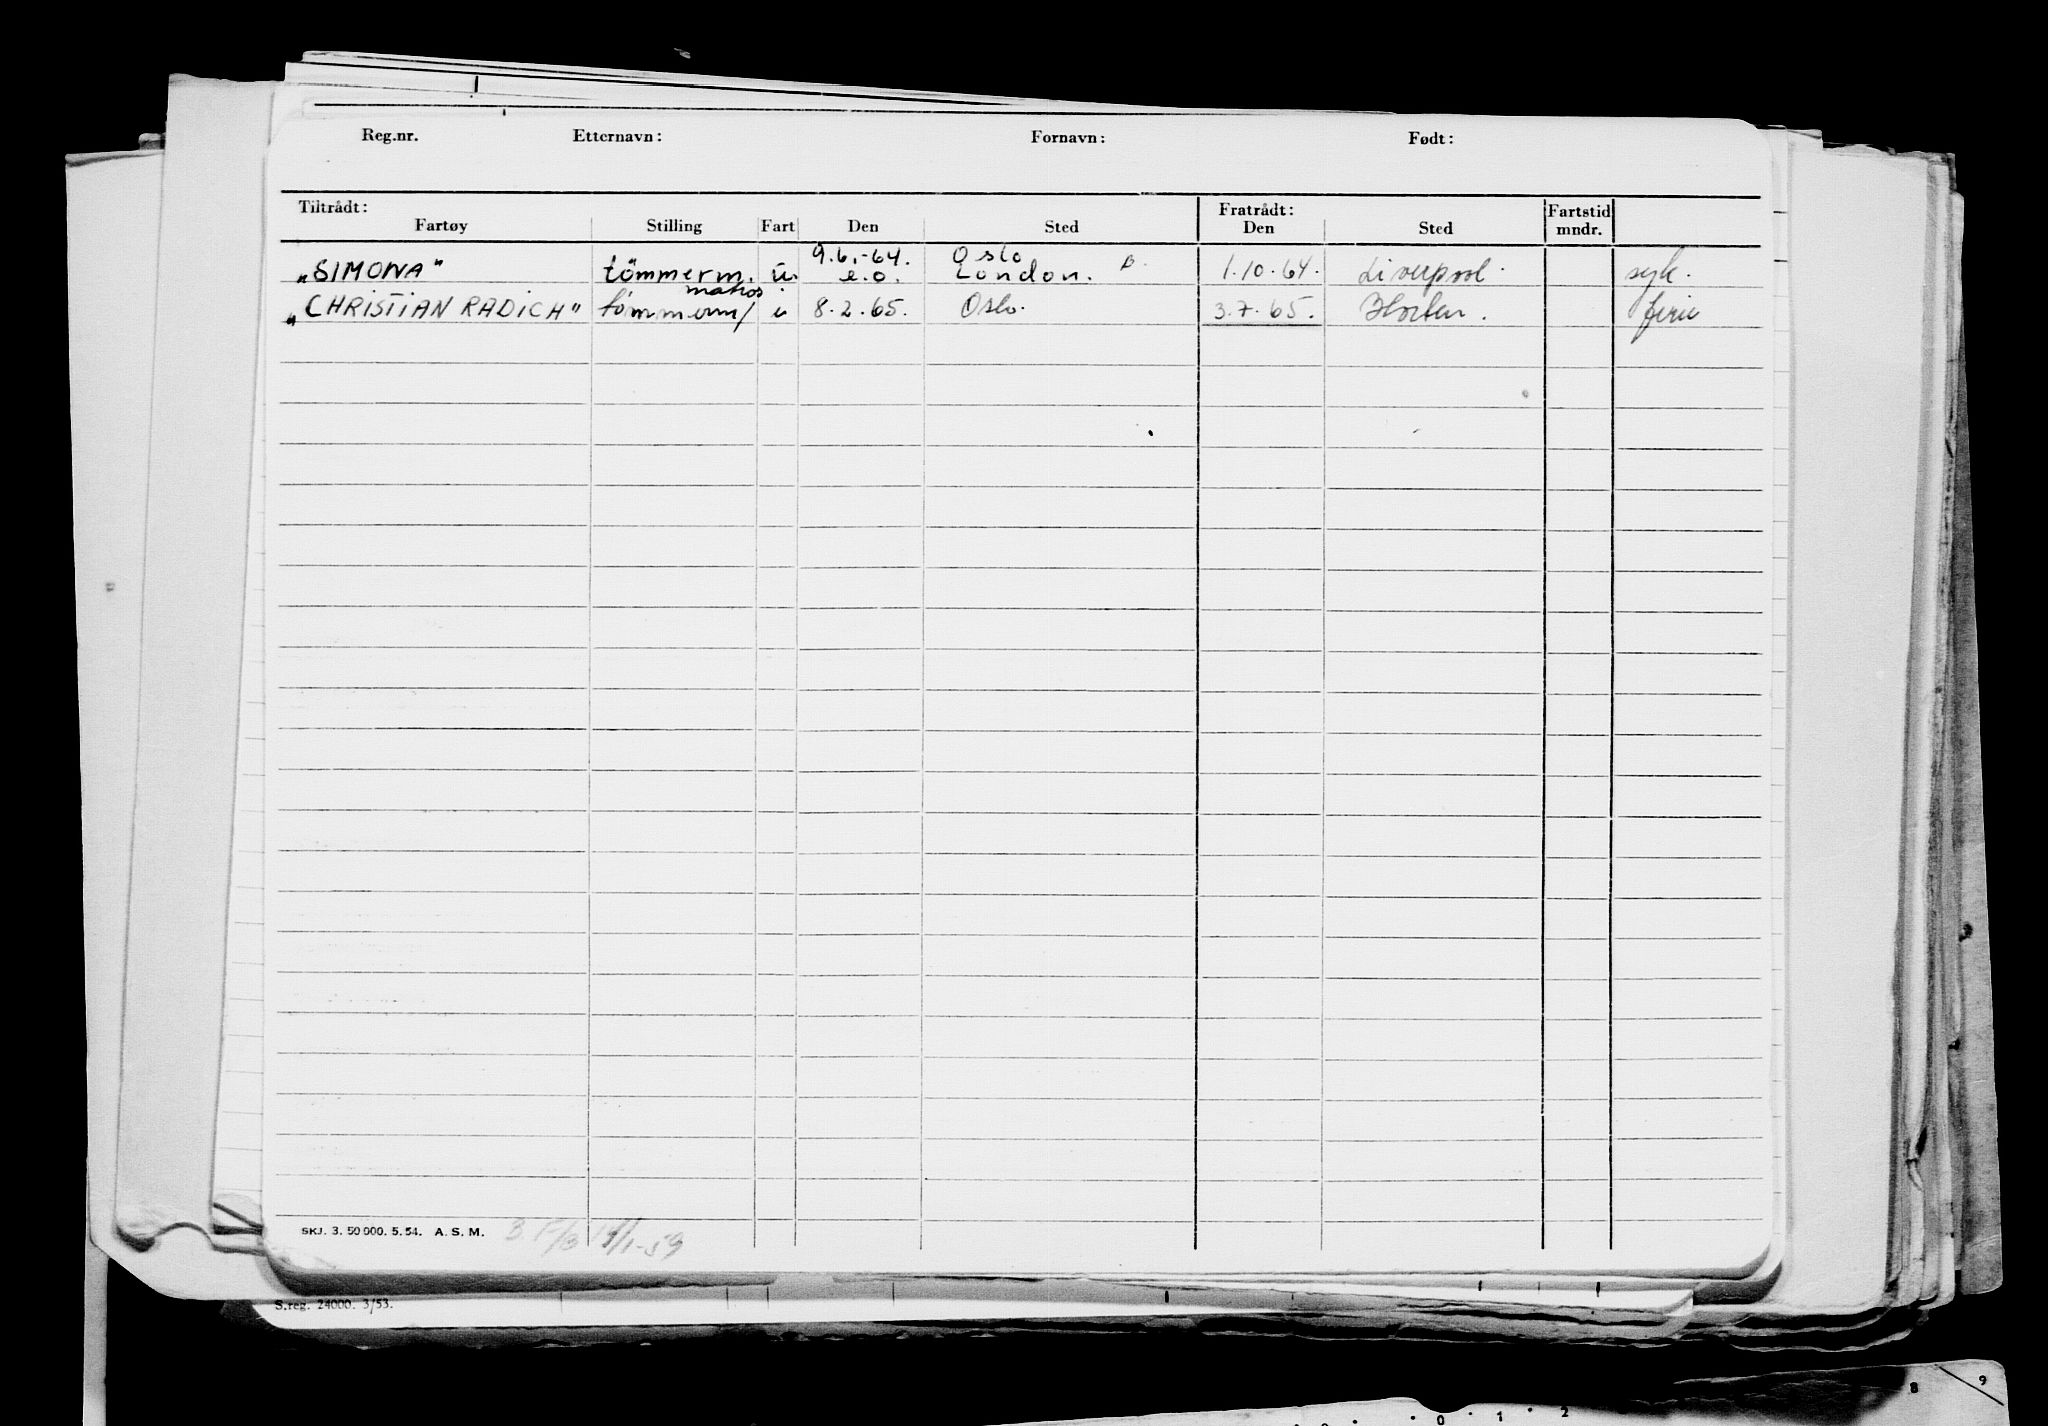 Reg.nr. Etternavn: Fornavn: Født:
Tiltrådt: Fratrådt: Fartstid
Fartøy Stilling Fart Den Sted Den Sted mndr.
9.6.-64. Oslo
"SIMONA" tömmerm. u. e.o. London. B. 1.10.64. Liverpool. syk.
matros
"CHRISTIAN RADICH" tømmerm/ u 8.2.65. Oslo. 3.7.65. Horten. ferie
SKJ. 3. 50 000. 5. 54. A. S. M.
S.reg. 24000. 3/53.
8 9
0 1 2